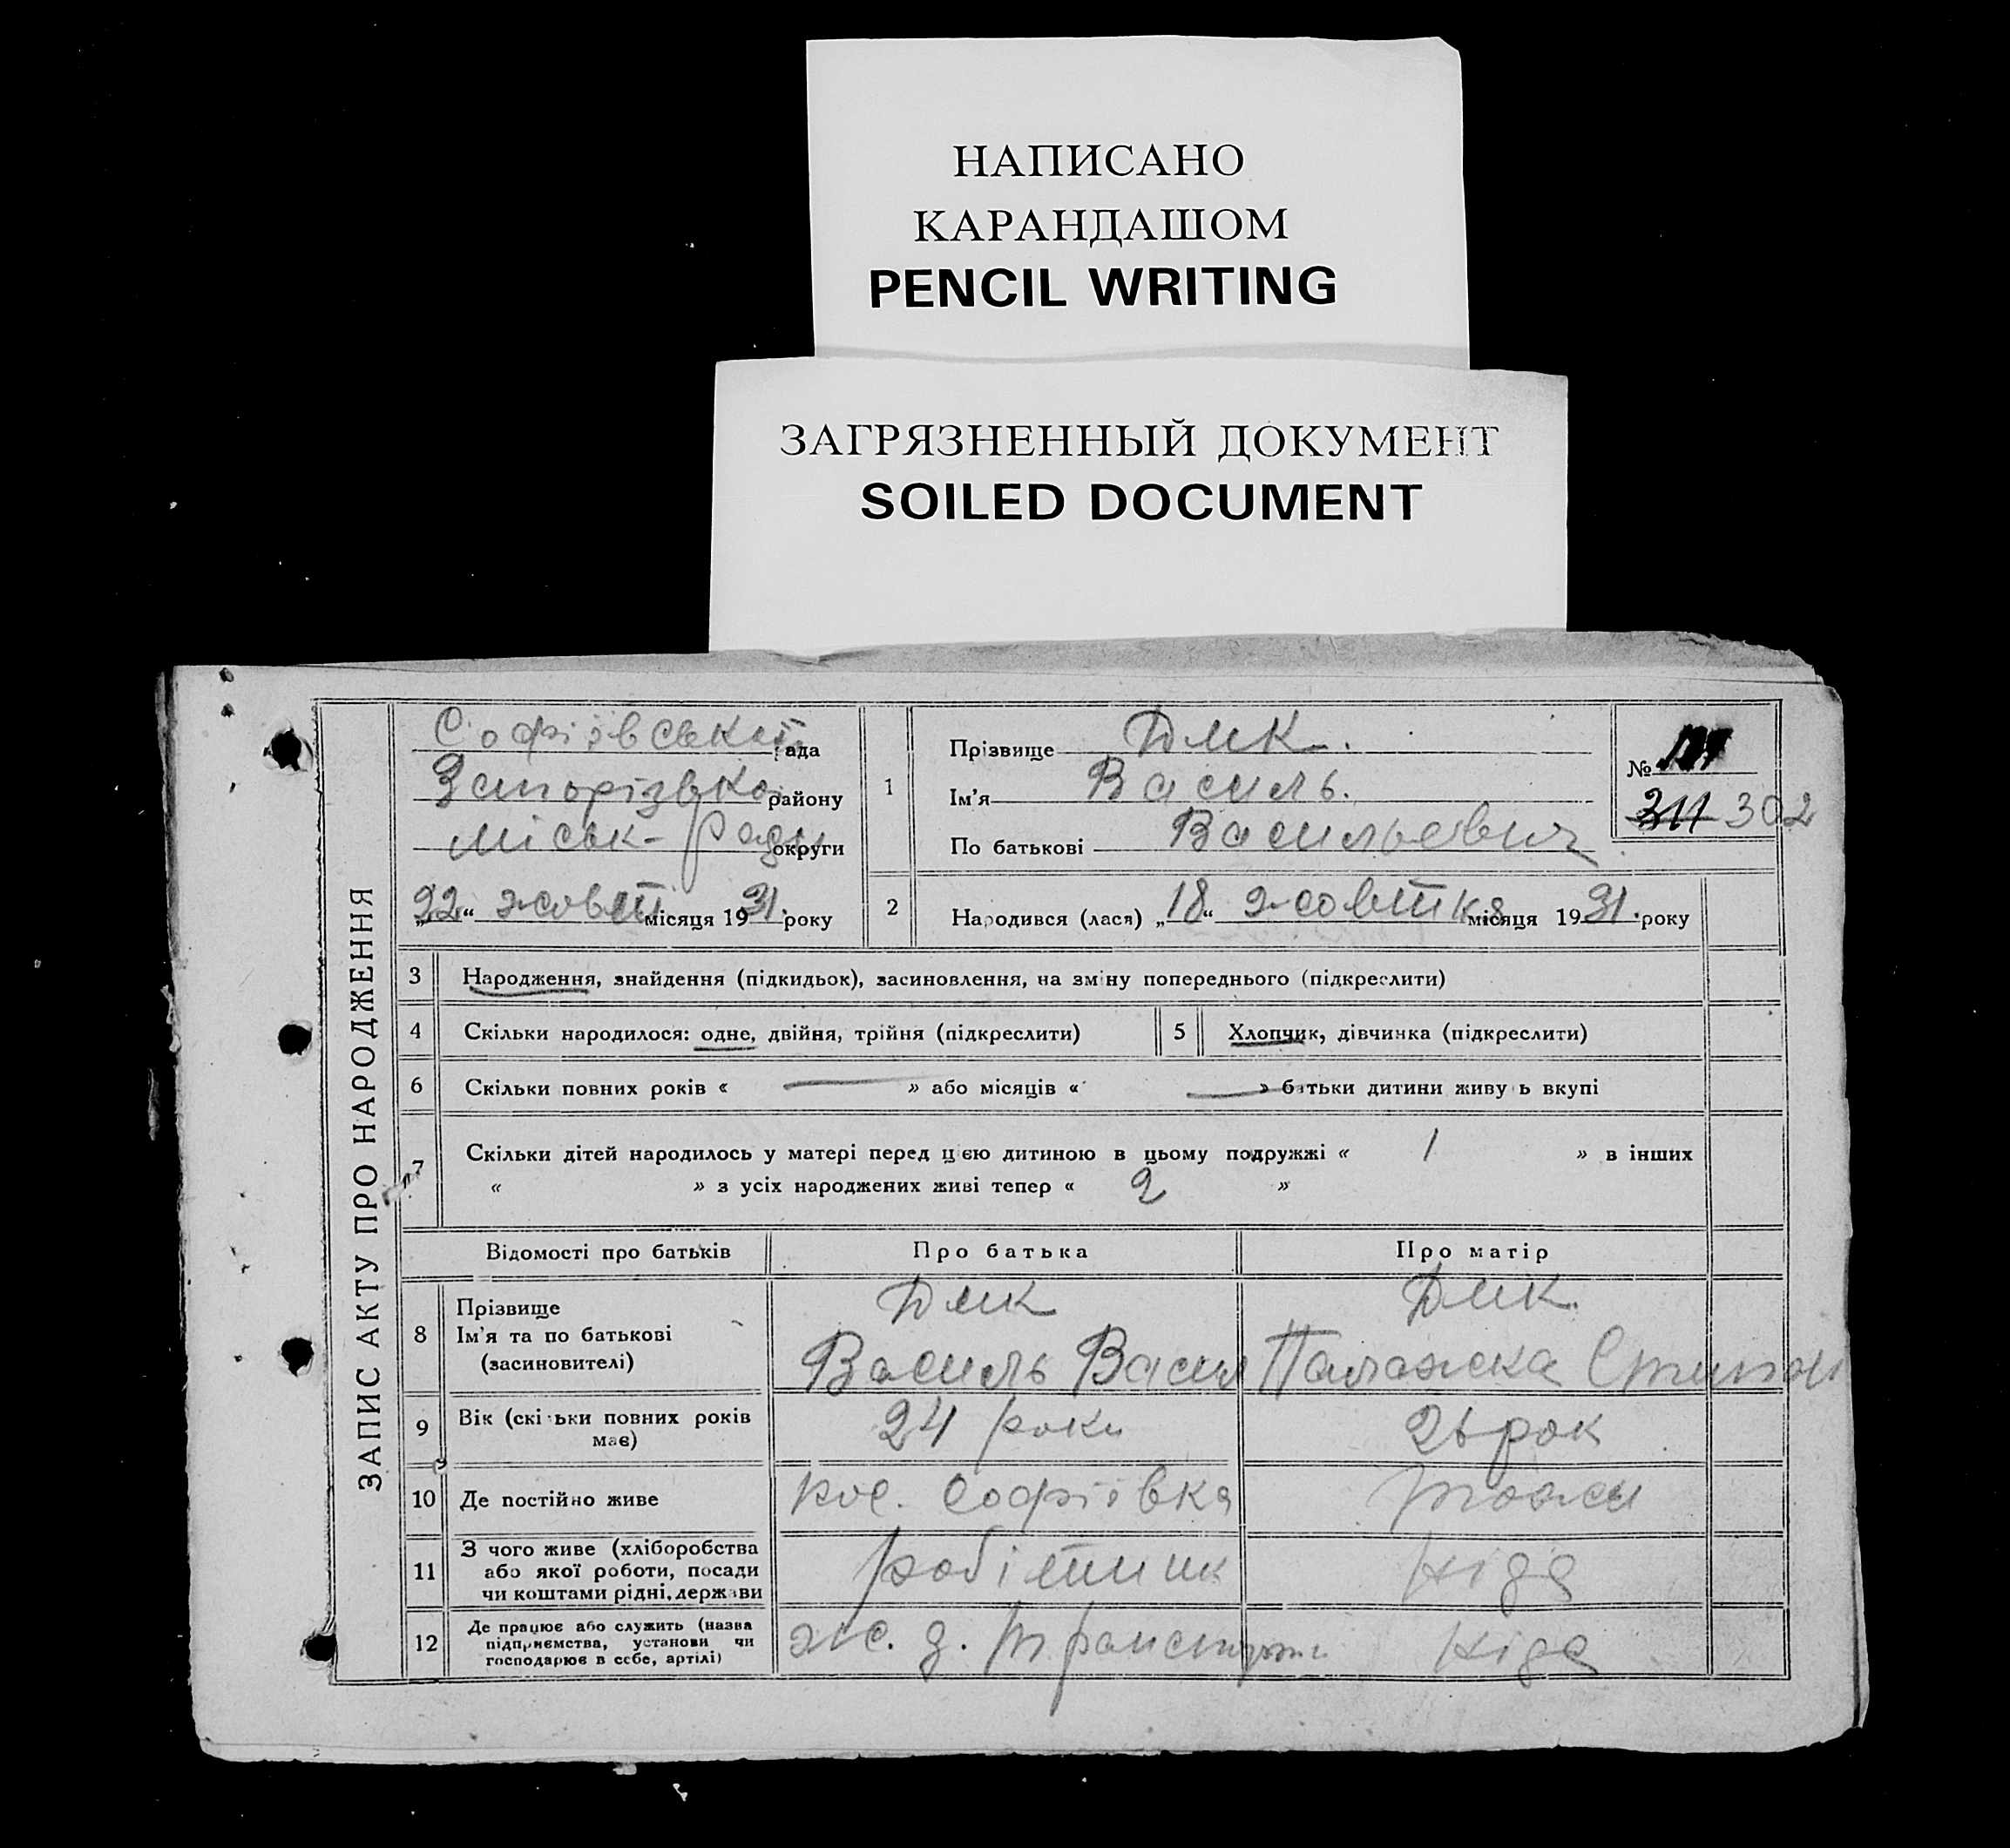 НАПИСАНО
КАРАНДАШОМ
PENCIL WRITING
ЗАГРЯЗНЕННЫЙ ДОКУМЕНТ
SOILED DOCUMENT
ЗАПИС АКТУ ПРО НАРОДЖЕННЯ
Софіївської рада
Запорізько району
міськ-Ради округи
„22“ жовт місяця 1931. року
1
Прізвище Дик.
Ім'я Василь.
По батькові Васильевич
№
311 302
2
Народився (лася) „18“ жовтня місяця 1931. року
3 Народження, знайдення (підкидьок), засиновлення, на зміну попереднього (підкреслити)
4 Скільки народилося: одне, двійня, трійня (підкреслити)
5 Хлопчик, дівчинка (підкреслити)
6 Скільки повних років « — » або місяців « — » батьки дитини живуть вкупі
7 Скільки дітей народилось у матері перед цією дитиною в цьому подружжі « 1 » в інших
« » з усіх народжених живі тепер « 2 »
Відомості про батьків Про батька Про матір
8 Прізвище Дик Дик.
Ім'я та по батькові Василь Васил Палажка Степан
(засиновителі)
9 Вік (скільки повних років має) 24 роки 26 рок
10 Де постійно живе пос. Софіївка тоже
11 З чого живе (хліборобства або якої роботи, посади чи коштами рідні, держави робітник
12 Де працює або служить (назва підприємства, установи чи господарює в себе, артілі) ж. д. транспорт